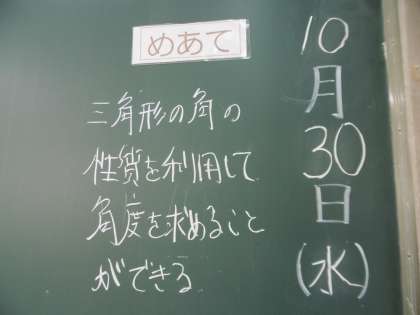 10月30日(水)
めあて
三角形の角の
性質を利用して
角度を求めること
ができる